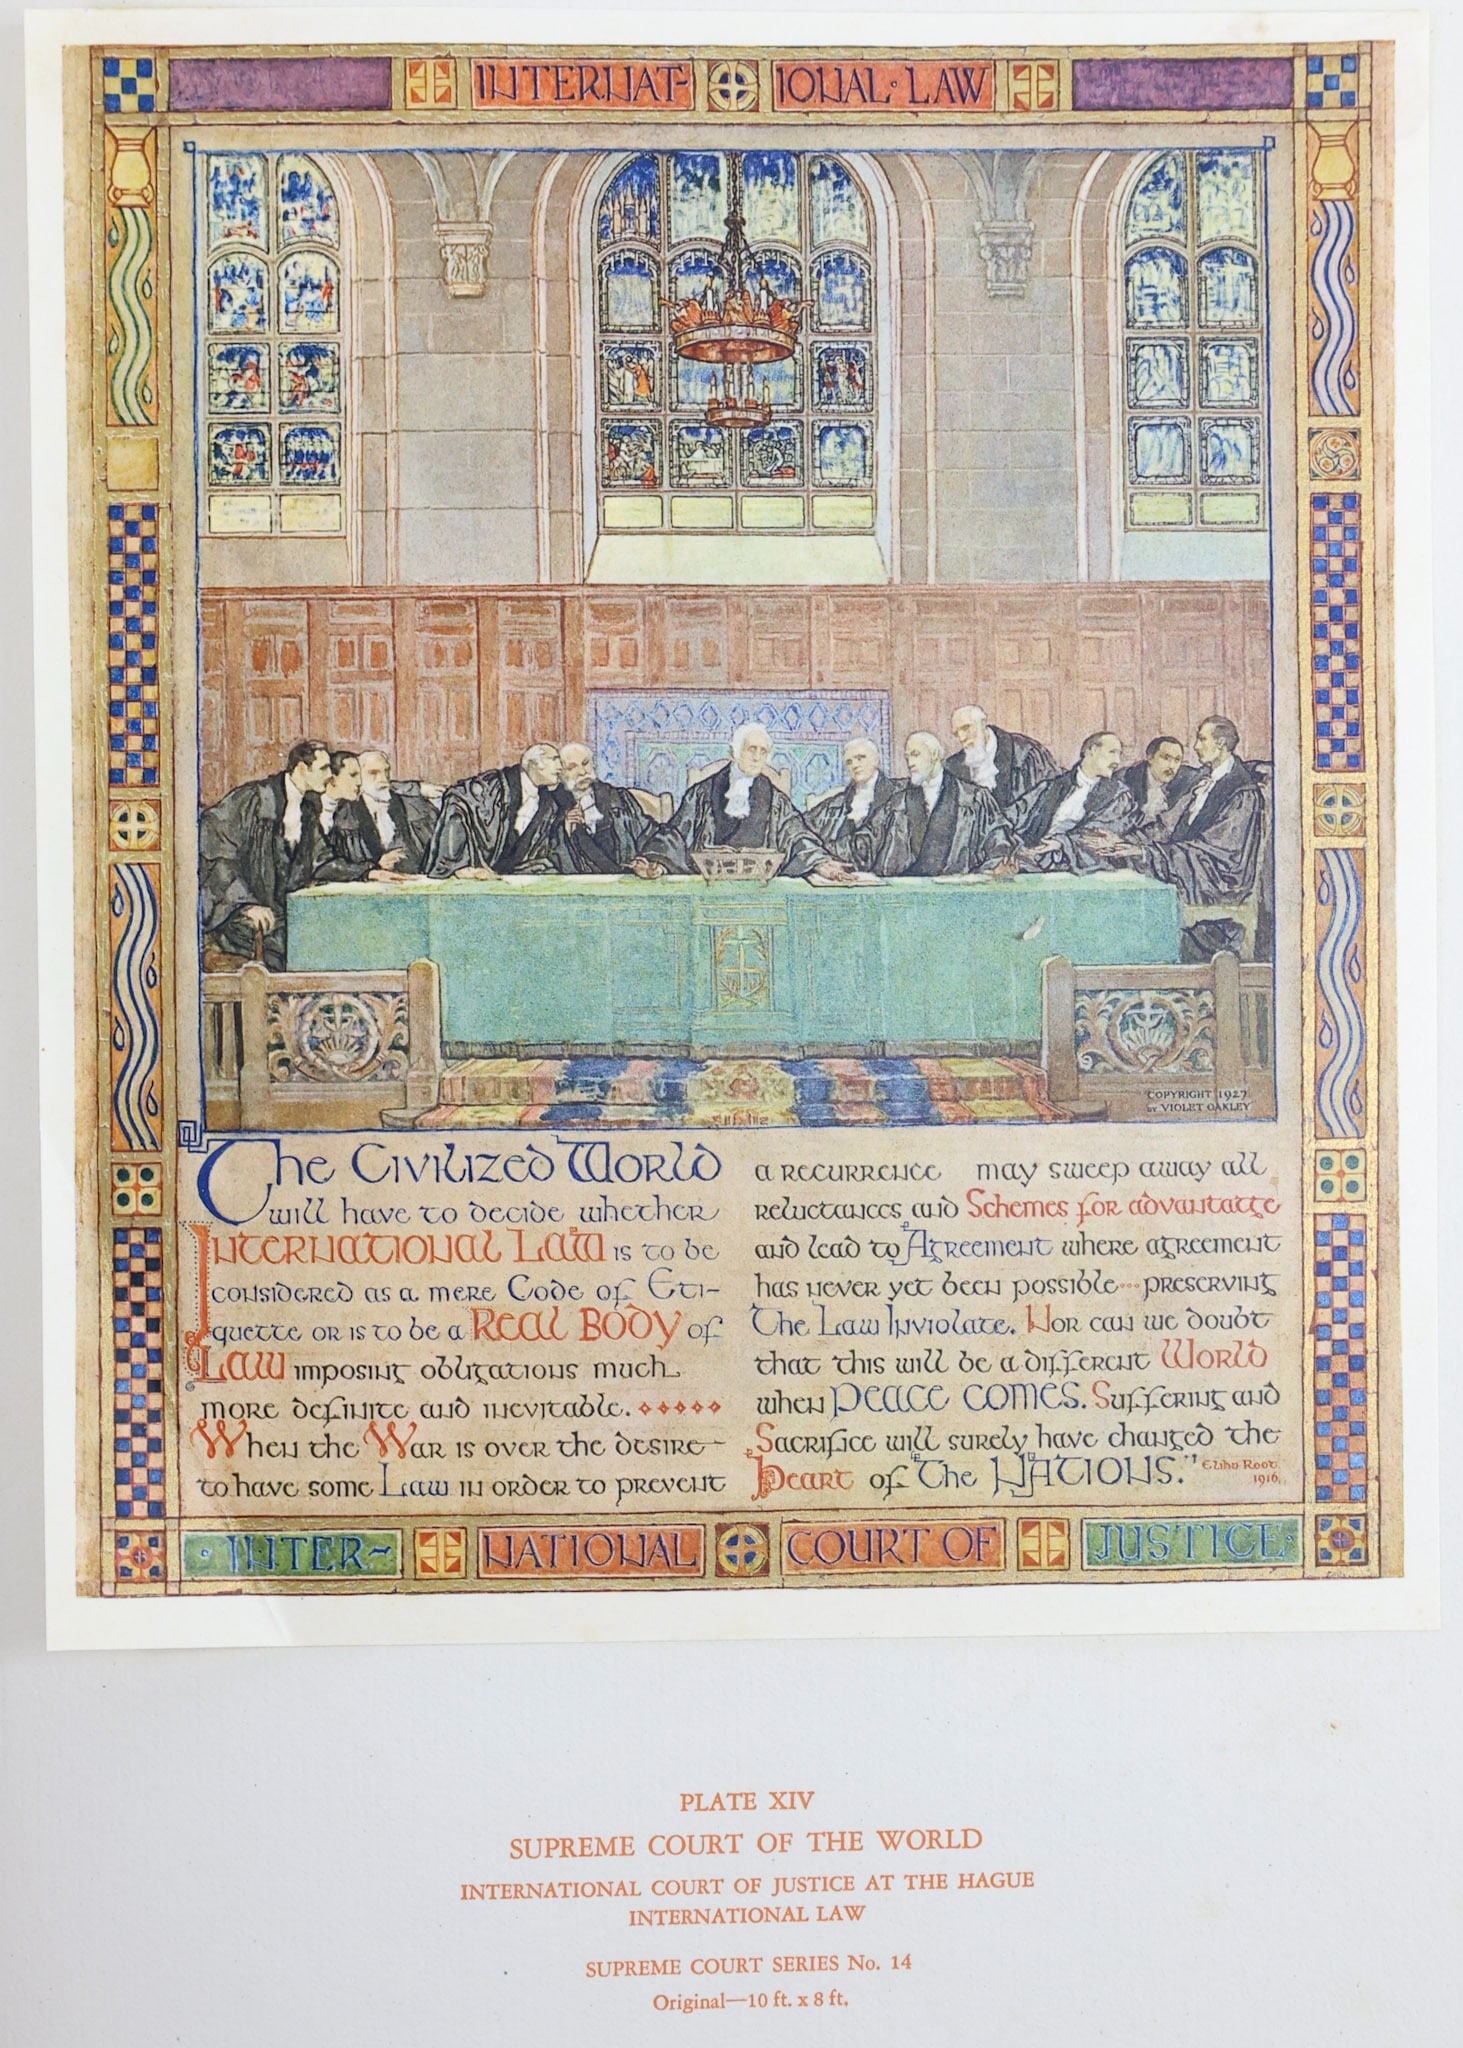 INTERNAT-IONAL·LAW
COPYRIGHT 1927
BY VIOLET OAKLEY
The Civilized World
will have to decide whether
International Law is to be
considered as a mere Code of Eti-
quette or is to be a Real Body of
Law imposing obligations much
more definite and inevitable.
When the War is over the desire
to have some Law in order to prevent
a recurrence may sweep away all
reluctances and Schemes for advantage
and lead to Agreement where agreement
has never yet been possible···preserving
The Law Inviolate. Nor can we doubt
that this will be a different World
when Peace comes. Suffering and
Sacrifice will surely have changed the
Heart of "The Nations."
Elihu Root
1916
·INTER-NATIONAL COURT OF JUSTICE·
PLATE XIV
SUPREME COURT OF THE WORLD
INTERNATIONAL COURT OF JUSTICE AT THE HAGUE
INTERNATIONAL LAW
SUPREME COURT SERIES No. 14
Original—10 ft. x 8 ft.